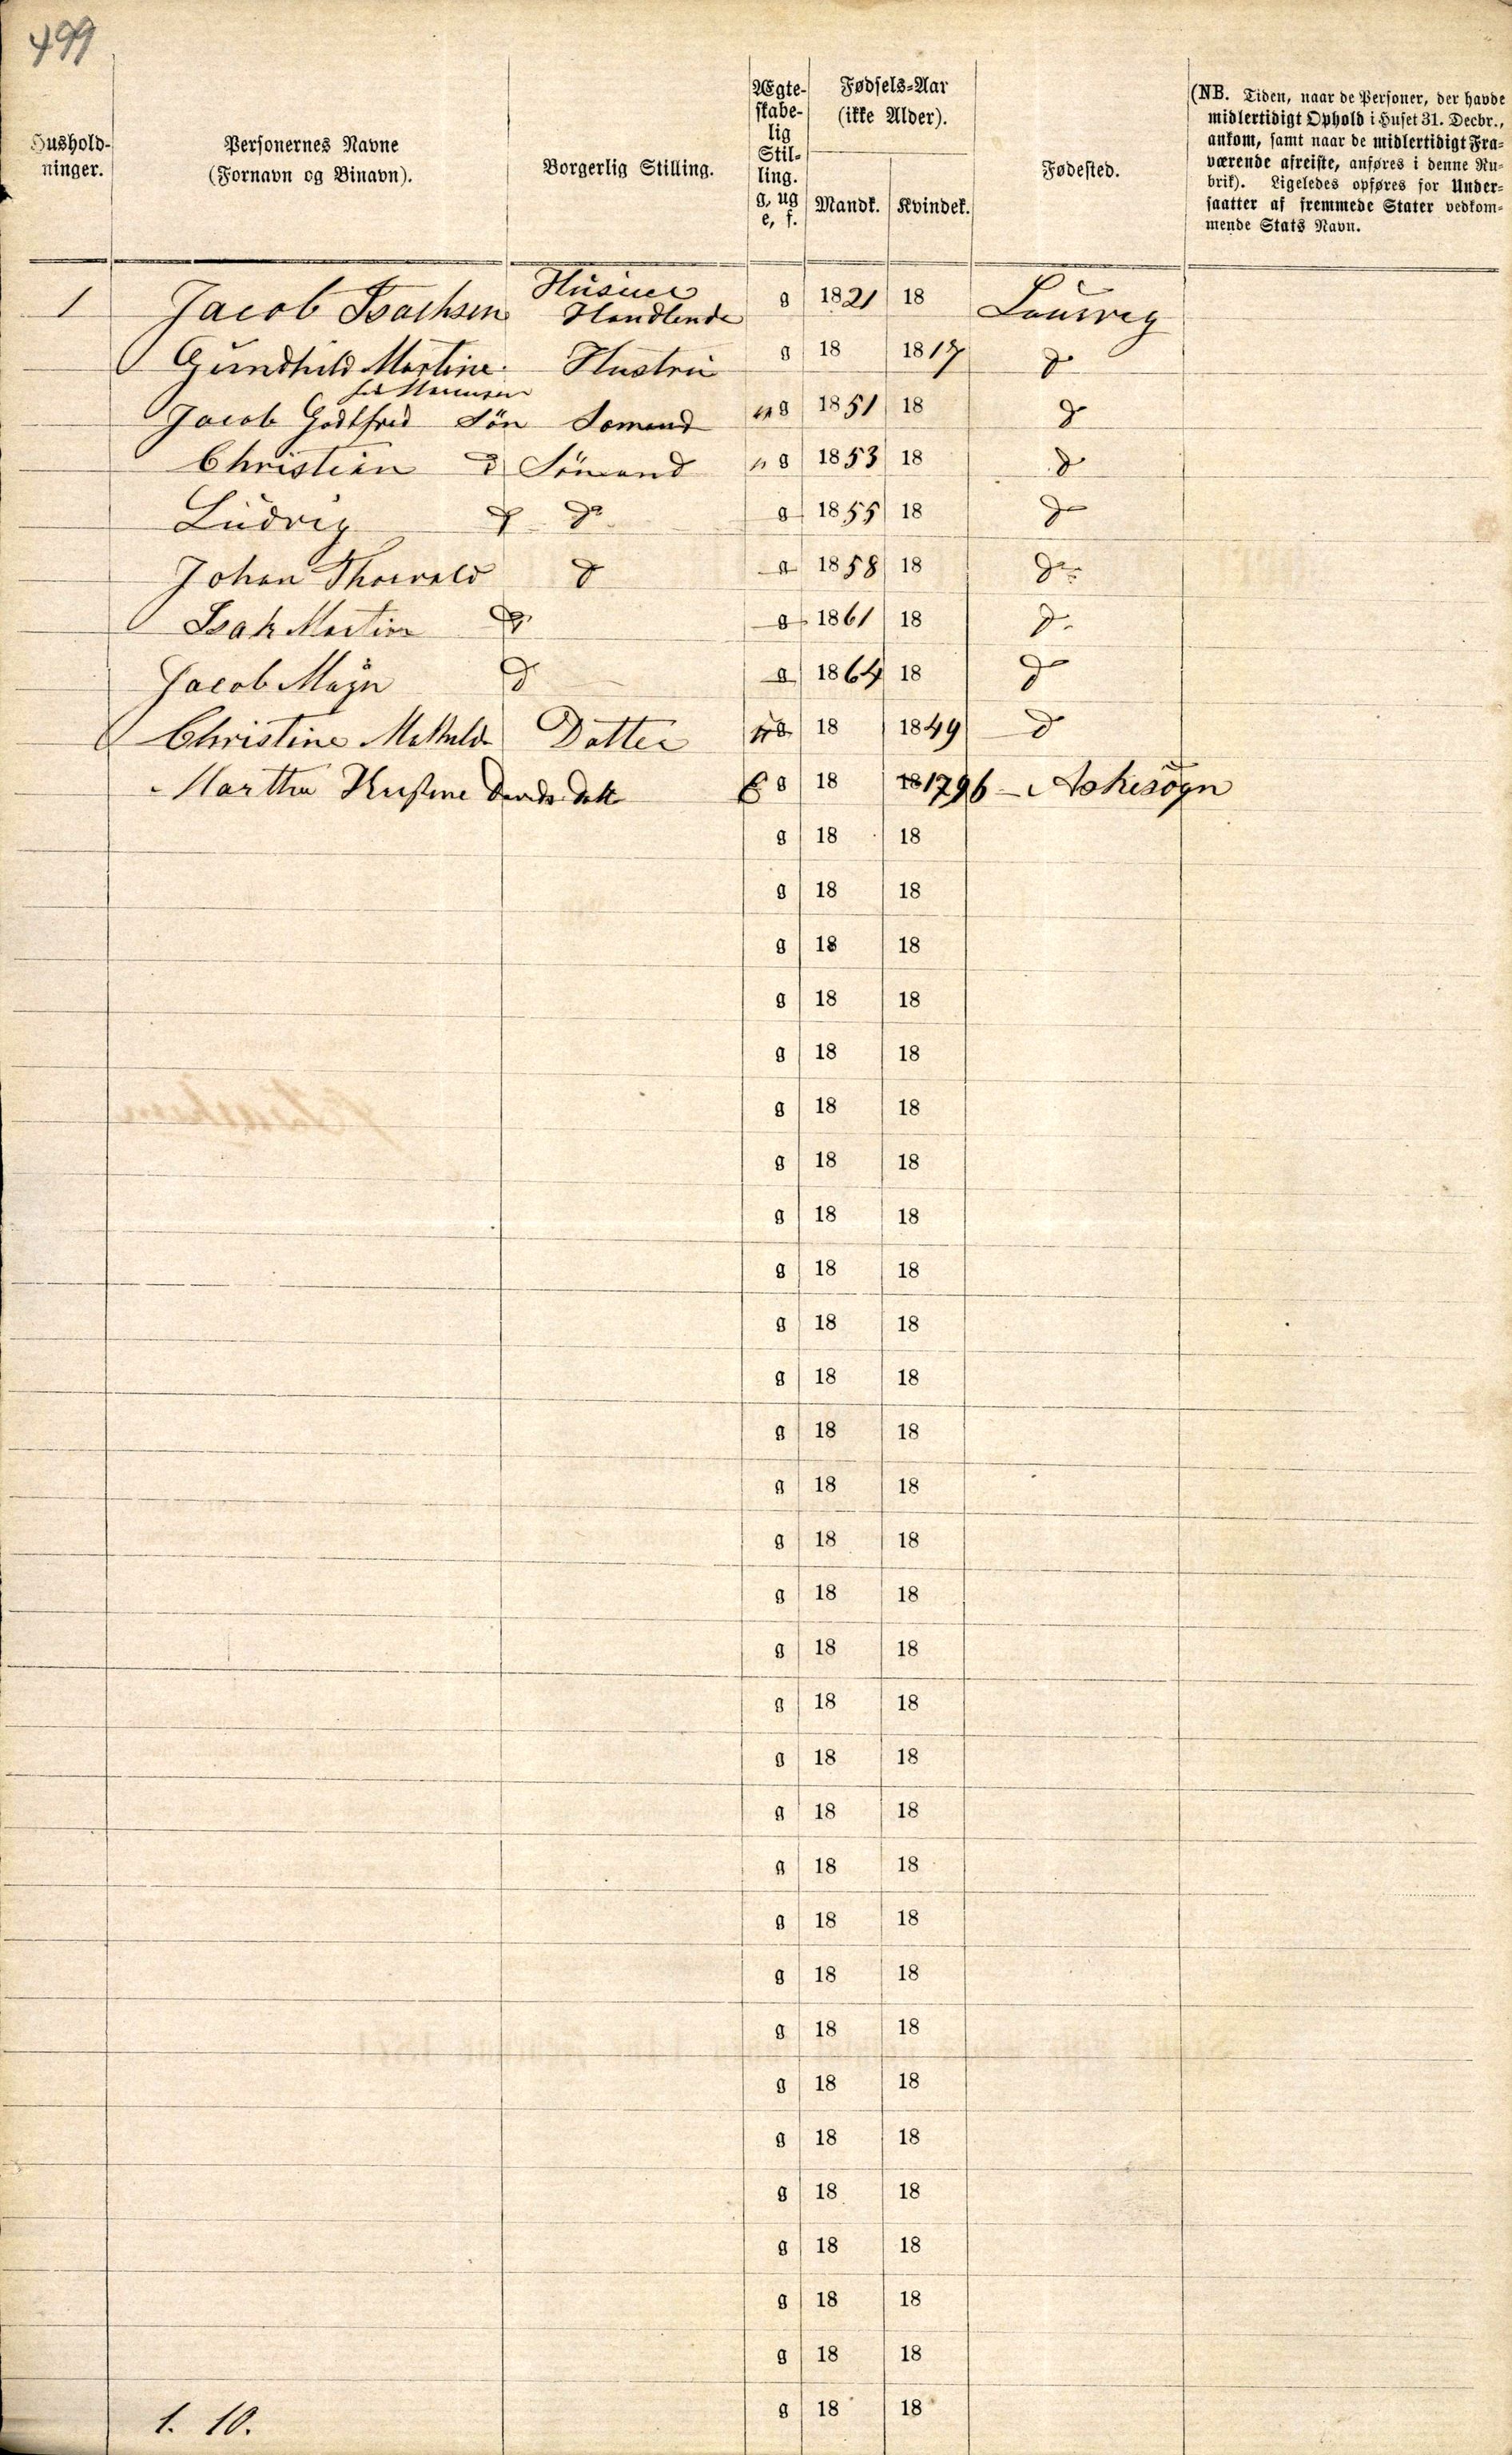 499
Hushold-
ninger.
Personernes Navne
(Fornavn og Binavn).
Borgerlig Stilling.
Ægte-
skabe-
lig
Stil-
ling.
g, ug
e, f.
Fødsels-Aar
(ikke Alder).
Mandk. Kvindek.
Fødested.
(NB. Tiden, naar de Personer, der havde
midlertidigt Ophold i Huset 31. Decbr.,
ankom, samt naar de midlertidigt Fra-
værende afreiste, anføres i denne Ru-
brik). Ligeledes opføres for Under-
saatter af fremmede Stater vedkom-
mende Stats Navn.
1 Jacob Isachsen Huseier Handlende g 1821 18 Laurvig
Gundhild Martine Hustru g 18 1817 do
Jacob Godtfred Sön Sømand ug 1851 18 do
Christian do Sömand ug 1853 18 do
Ludvig do do g 1855 18 do
Johan Thorvald do g 1858 18 do
Isak Martin do g 1861 18 do
Jacob Magn do g 1864 18 do
Christine Mathilde Datter ug 18 1849 do
Martha Kristine Davids datt E g 18 18 1796 - Askesogn
g 18 18
g 18 18
g 18 18
g 18 18
g 18 18
g 18 18
g 18 18
g 18 18
g 18 18
g 18 18
g 18 18
g 18 18
g 18 18
g 18 18
g 18 18
g 18 18
g 18 18
g 18 18
g 18 18
g 18 18
g 18 18
g 18 18
g 18 18
g 18 18
g 18 18
g 18 18
g 18 18
g 18 18
g 18 18
g 18 18
1. 10.